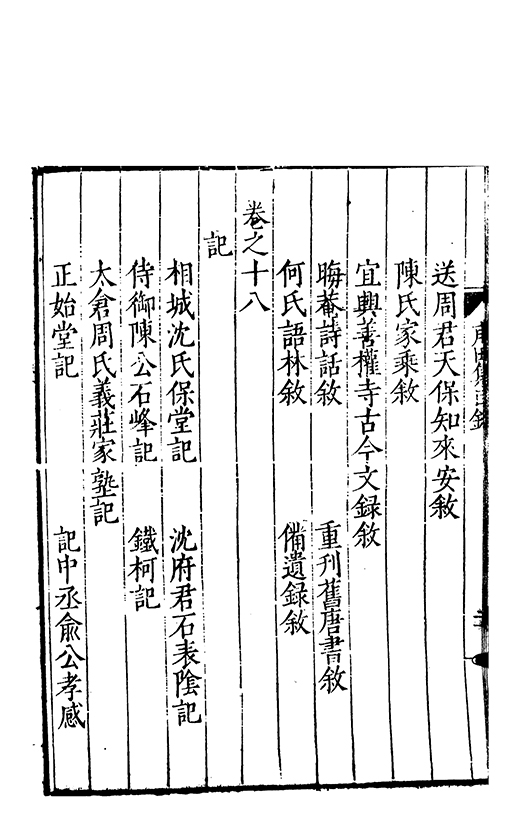 送周君天保知來安敘
陳氏家乘敘
宜興善權寺古今文録敘
晦菴詩話敘　重刊舊唐書敘
何氏語林敘　備遺録敘
卷之十八
記
相城沈氏保堂記　沈府君石表陰記
侍御陳公石峰記　鐵柯記
太倉周氏義莊家塾記
正始堂記　記中丞俞公孝感